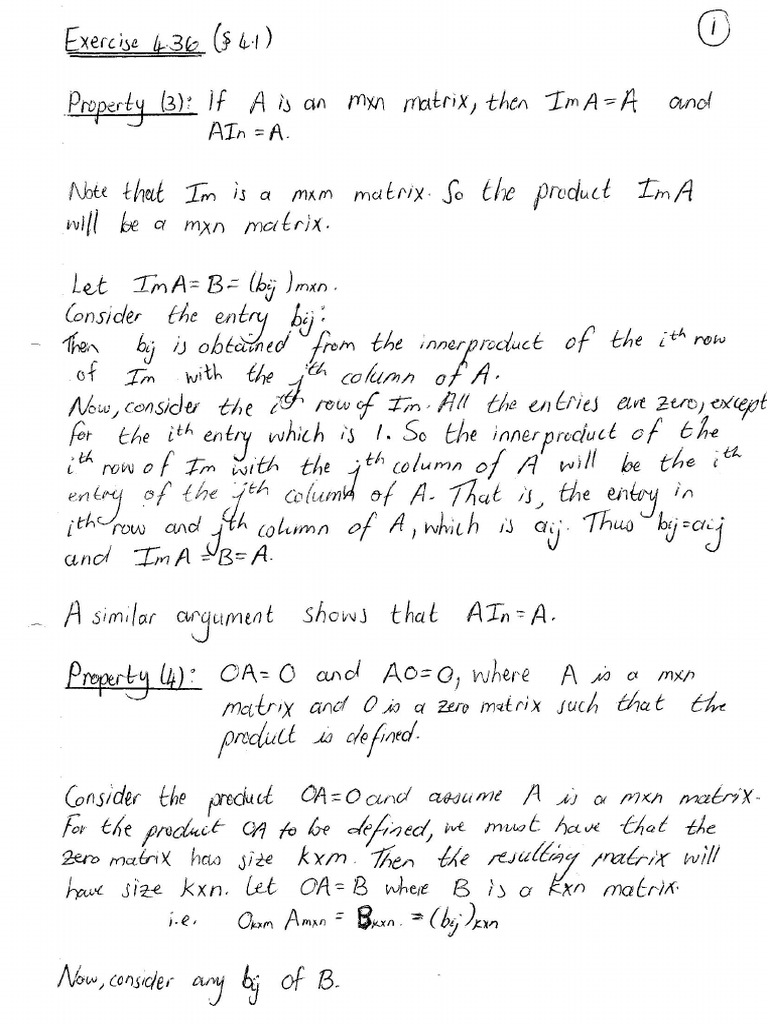 1
Exercise 4.36 (§ 4.1)
Property (3): If A is an mxn matrix, then ImA = A and
AIn = A.
Note that Im is a mxm matrix. So the product ImA
will be a mxn matrix.
Let ImA = B = (bij)mxn.
Consider the entry bij:
Then bij is obtained from the innerproduct of the ith row
of Im with the jth column of A.
Now, consider the ith row of Im. All the entries are zero, except
for the ith entry which is 1. So the innerproduct of the
ith row of Im with the jth column of A will be the ith
entry of the jth column of A. That is, the entry in
ith row and jth column of A, which is aij. Thus bij = aij
and ImA = B = A.
A similar argument shows that AIn = A.
Property (4): OA = O and AO = O, where A is a mxn
matrix and O is a zero matrix such that the
product is defined.
Consider the product OA = O and assume A is a mxn matrix.
For the product OA to be defined, we must have that the
zero matrix has size kxm. Then the resulting matrix will
have size kxn. Let OA = B where B is a kxn matrix.
i.e. Okxm Amxn = Bkxn. = (bij)kxn
Now, consider any bij of B.